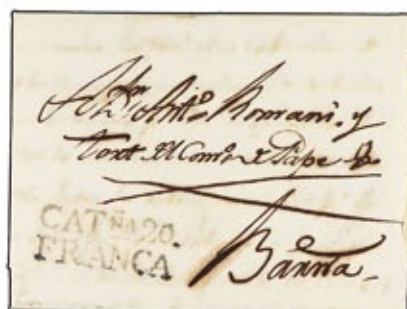 A Dn Anto. Romani. y
Tort del Como. de Pape
CATÑA 20.
FRANCA
Barna.